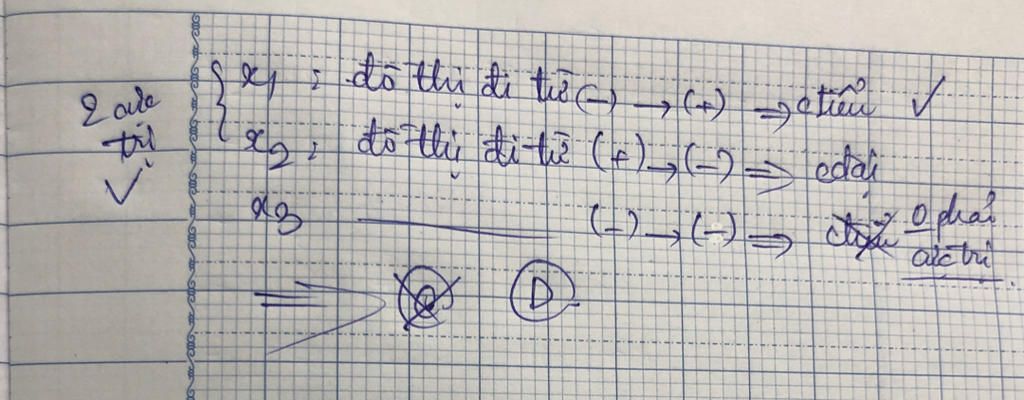 2 cực
trị
✓
x1 : đồ thị đi từ (-) → (+) ⇒ ctiểu ✓
x2 : đồ thị đi từ (+) → (-) ⇒ cđại
x3 ——— (-) → (-) ⇒ 0 phải
cực trị
⇒ D